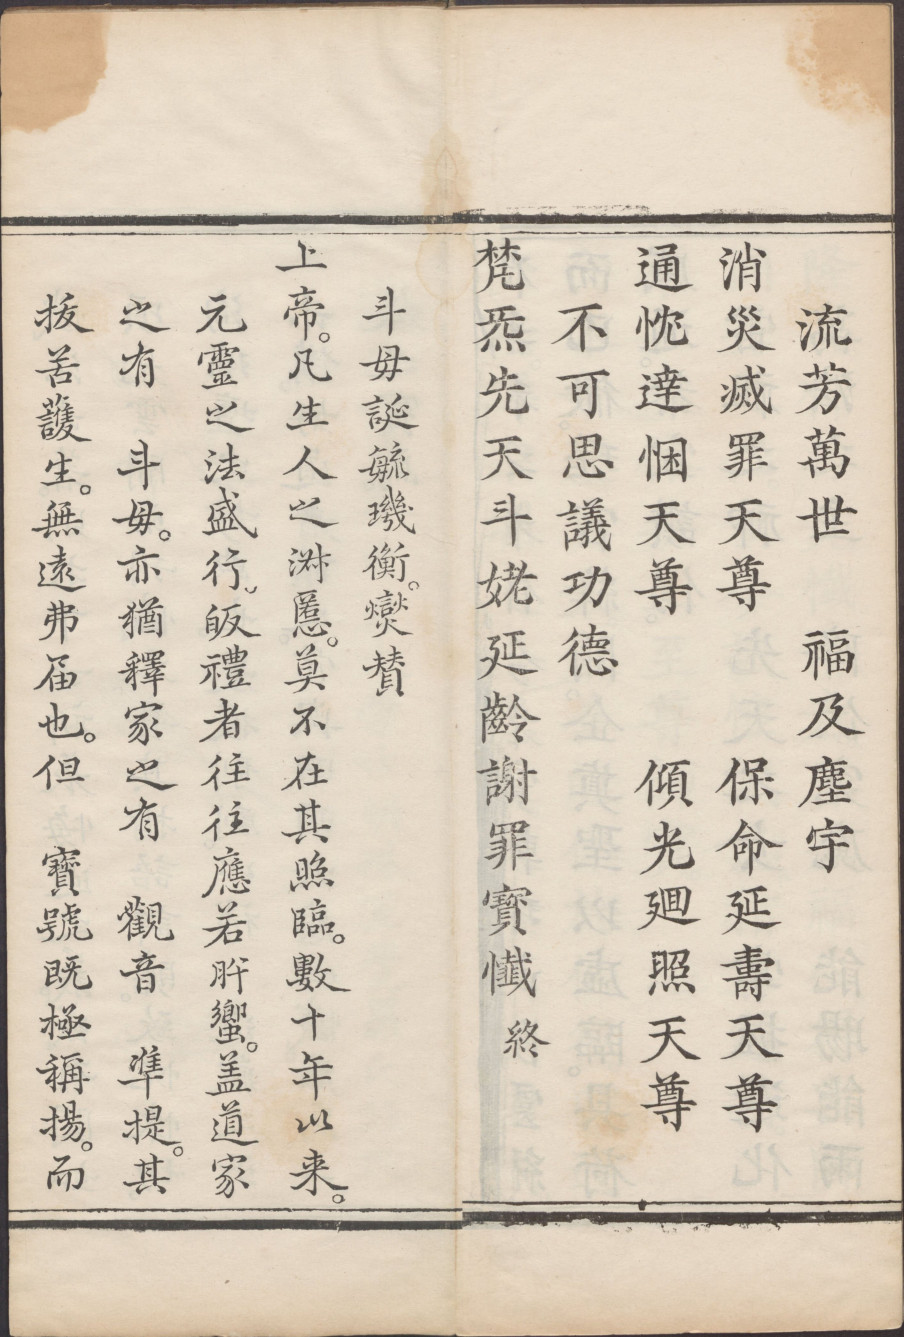 流芳萬世　福及塵宇
消災滅罪天尊　　保命延壽天尊
通忱達悃天尊　　傾光廻照天尊
不可思議功德
梵炁先天斗姥延齡謝罪寶懺　終
斗母誕毓璣衡。爕賛
上帝。凡生人之淋慝。莫不在其照臨。數十年以来。
元靈之法盛行、皈禮者往往應若肸蠁。盖道家
之有　斗母。亦猶釋家之有　觀音　準提。其
拔苦護生。無遠弗届也。但　寶號既極稱揚。而